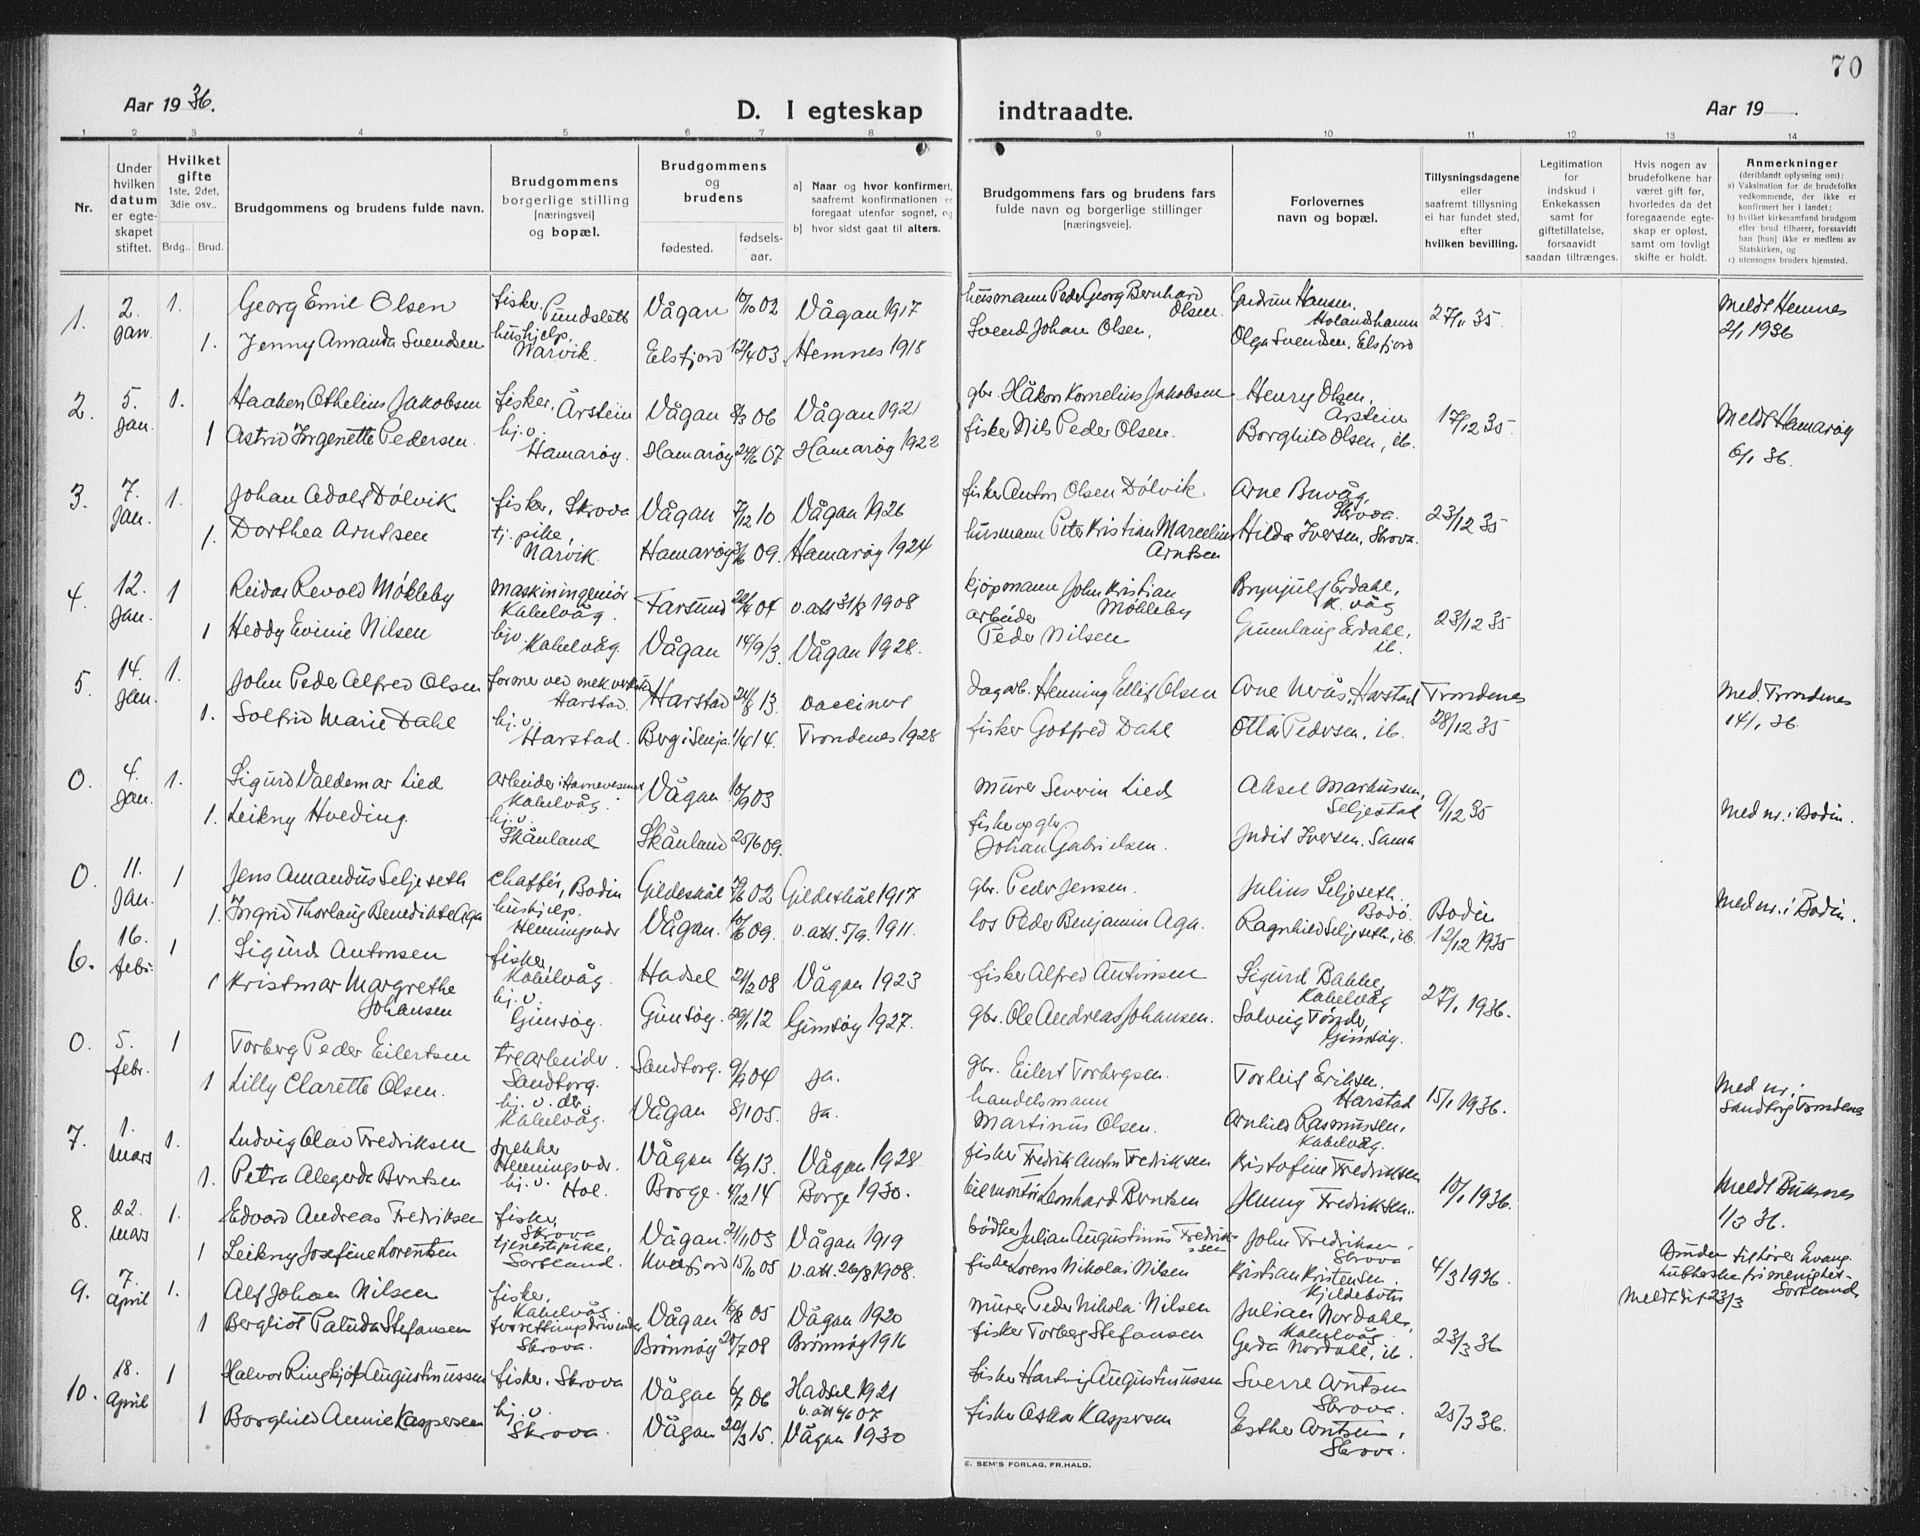 70
Aar 1936.
D. I egteskap indtraadte.
Aar 19
1 2 3 4 5 6 7 8 9 10 11 12 13 14
Nr.
Under
hvilken
datum
er egte-
skapet
stiftet.
Hvilket
gifte
1ste, 2det,
3die osv..
Brdg.. Brud.
Brudgommens og brudens fulde navn.
Brudgommens
borgerlige stilling
[næringsvei]
og bopæl.
Brudgommens
og
brudens
fødested.
fødsels-
aar.
a) Naar og hvor konfirmert,
saafremt konfirmationen er
foregaat utenfor sognet, og
b) hvor sidst gaat til alters.
Brudgommens fars og brudens fars
fulde navn og borgerlige stillinger
[næringsveie].
Forlovernes
navn og bopæl.
Tillysningsdagene
eller
saafremt tillysning
ei har fundet sted,
efter
hvilken bevilling.
Legitimation
for
indskud i
Enkekassen
samt for
giftetillatelse,
forsaavidt
saadan tiltrænges.
Hvis nogen av
brudefolkene har
været gift før,
hvorledes da det
foregaaende egte-
skap er opløst,
samt om lovligt
skifte er holdt.
Anmerkninger
(deriblandt oplysning om):
a) Vaksination for de brudefolks
vedkommende, der ikke er
konfirmert her i landet;
b) hvilket kirkesamfund brudgom
eller brud tilhører, forsaavidt
han [hun] ikke er medlem av
Statskirken, og
c) utensogns bruders hjemsted.
1. 2. jan. 1. Georg Emil Olsen fisker, Pundslett Vågan 10/10 02 Vågan 1917 husmann Peder Georg Bernhard Olsen. Gudrun Hansen, Holandshamn 27/11 35 Meldt Hemnes
1. Jenny Amanda Svendsen hushjelp, Narvik. Elsfjord 12/4 03 Hemnes 1918 Svend Johan Olsen, Olga Svendsen, Elsfjord 2/1 1936
2. 5. jan. 1. Haaken Othelius Jakobsen fisker, Årstein Vågan 8/3 06 Vågan 1921 gbr. Håkon Kornelius Jakobsen Henry Olsen, Årstein 17/12 35. Meldt Hamarøy
1 Astrid Jørgenette Pedersen. hj.v. Hamarøy. Hamarøy 24/6 07 Hamarøy 1922 fisker Nils Peder Olsen. Borghild Olsen, ib. 6/1 36.
3. 7. jan. 1. Johan Adolf Dølvik fisker, Skrova Vågan 7/12 10 Vågan 1926 fisker Anton Olsen Dølvik Arne Buvåg, Skrova. 23/12 35
1. Dorthea Arntsen tj. pike, Narvik Hamarøy 09. Hamarøy 1924 husmann Peter Kristian Marcelius Arntsen Hilda Iversen, Skrova.
4. 12. jan. 1 Reidar Revold Møkleby maskiningeniør Kabelvåg. Farsund 04 v. att 31/8 1908 kjøpmann John Kristian Møkleby Brynjulf Erdahl, K. våg 23/12 35
1 Heddy Evinie Nilsen hjv. Kabelvåg Vågan 14/9 13. Vågan 1928. arbeider Peder Nilsen Gunnlaug Erdahl, ib.
5. 14. jan. 1. John Peder Alfred Olsen former ved mek. verksted Harstad. Harstad 24/8 13. vaccinert dagarb. Henning Ellif Olsen Arne Nerås, Harstad Trondenes Med. Trondenes
1. Solfrid Marie Dahl hj.v. Harstad. Berg i Senja. 1/4 14. Trondenes 1928 fisker Gotfred Dahl Otto Pedersen, ib. 28/12 35 14/1 36.
0. 4. jan. 1. Sigurd Valdemar Lied arbeider i Havnevesenet Kabelvåg. Vågan 10/9 03 murer Severin Lied Aksel Markussen, Seljestad 9/12 35 Med nr. i Bodin.
1. Leikny Hveding. hj.v. Skånland Skånland 25/6 09. fisker og gbr. Johan Gabrielsen. Judit Iversen, Sama
0. 11. jan. 1 Jens Amandus Seljeseth chaffør, Bodin Gildeskål 02 Gildeskål 1917 gbr. Peder Jensen. Julius Seljeseth, Bodø. Bodin Med nr. i Bodin.
1. Ingrid Thorlaug Benedikte Aga hushjelp. Henningsvær Vågan. 10/6 09. v. att. 5/9. 1911. los Peder Benjamin Aga. Ragnhild Seljeseth, ib. 12/12 1935
6. 16. febr. 1 Sigurd Antonsen fisker, Kabelvåg. Hadsel 21/2 08 Vågan 1923 fisker Alfred Antonsen Sigurd Bakke, Kabelvåg 27/1 1936.
1 Kristmar Margrethe Johansen hj.v. Gimsøy. Gimsøy. 29/1 12 Gimsøy 1927. gbr. Ole Andreas Johansen. Solveig Tønder, Gimsøy.
0. 5. febr. 1 Torberg Peder Eilertsen trearbeider. Sandtorg. Sandtorg. 9/9 04 ja. gbr. Eilert Torbergsen. Torleif Eriksen. Harstad 15/1 1936. Med nr. i
1 Lilly Clarette Olsen. hj. v. Kabelvåg. Vågan 8/1 05 ja. handelsmann Martinus Olsen. Arnhild Rasmussen, Kabelvåg. Sandtorg Trondenes
7. 1. mars 1. Ludvig Olav Fredriksen snekker Henningsvær. Vågan 16/9 13. Vågan 1928 fisker Fredrik Anton Fredriksen Kristofine Fredriksen 10/1 1936. Meldt Buksnes
1. Petra Alegerda Berntsen hj.v. Hol. Borge. 4/12 14 Borge 1930. bilmontør Leonhard Berntsen Jenny Fredriksen. 1/3 36.
8. 22. mars 1. Edvard Andreas Fredriksen fisker, Skrova Vågan. 21/1 03 Vågan 1919 bødker Julian Augustinus Fredriksen John Fredriksen, Skrova 4/3 1936 Bruden tilhører Evang.
1 Leikny Josefine Lorentsen tjenestepike, Sortland. Kvæfjord 15/10 05 v. att. 26/8 1908. fisker Lorens Nikolai Nilsen Kristian Kristensen. Kjeldebotn lutherske frimenighet Sortland
9. 7. April 1. Alf Johan Nilsen fisker, Kabelvåg. Vågan 16/8 05 Vågan 1920 murer Peder Nikolai Nilsen Julian Nordahl, Kabelvåg 23/3 36 Meldt dit 23/3
1 Bergliot Paluda Stefansen forretningsdrivende Skrova. Brønnøy 20/7 08 Brønnøy 1916 fisker Torberg Stefansen Gerda Nordahl, ib.
10. 18. April 1 Halvor Ringkjøb Augustinussen fisker, Skrova Vågan 6/7 06 Hadsel 1921 v. att 07 fisker Hartvig Augustinussen Sverre Arntsen Skrova. 25/3 36.
1 Borghild Annie Kaspersen hj.v. Skrova. Vågan 20/3 15. Vågan 1930 fisker Oskar Kaspersen Esther Arntsen, Skrova.
E. SEM'S FORLAG, FR.HALD.